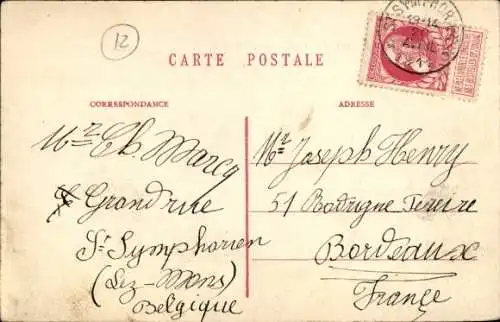 12
CARTE POSTALE
CORRESPONDANCE
ADRESSE
Mr Ch. Marcq
Grand'rue
St Symphorien
(Lez-Mons)
Belgique
Mr Joseph Henry
51 Rodrigue Pereire
Bordeaux
France